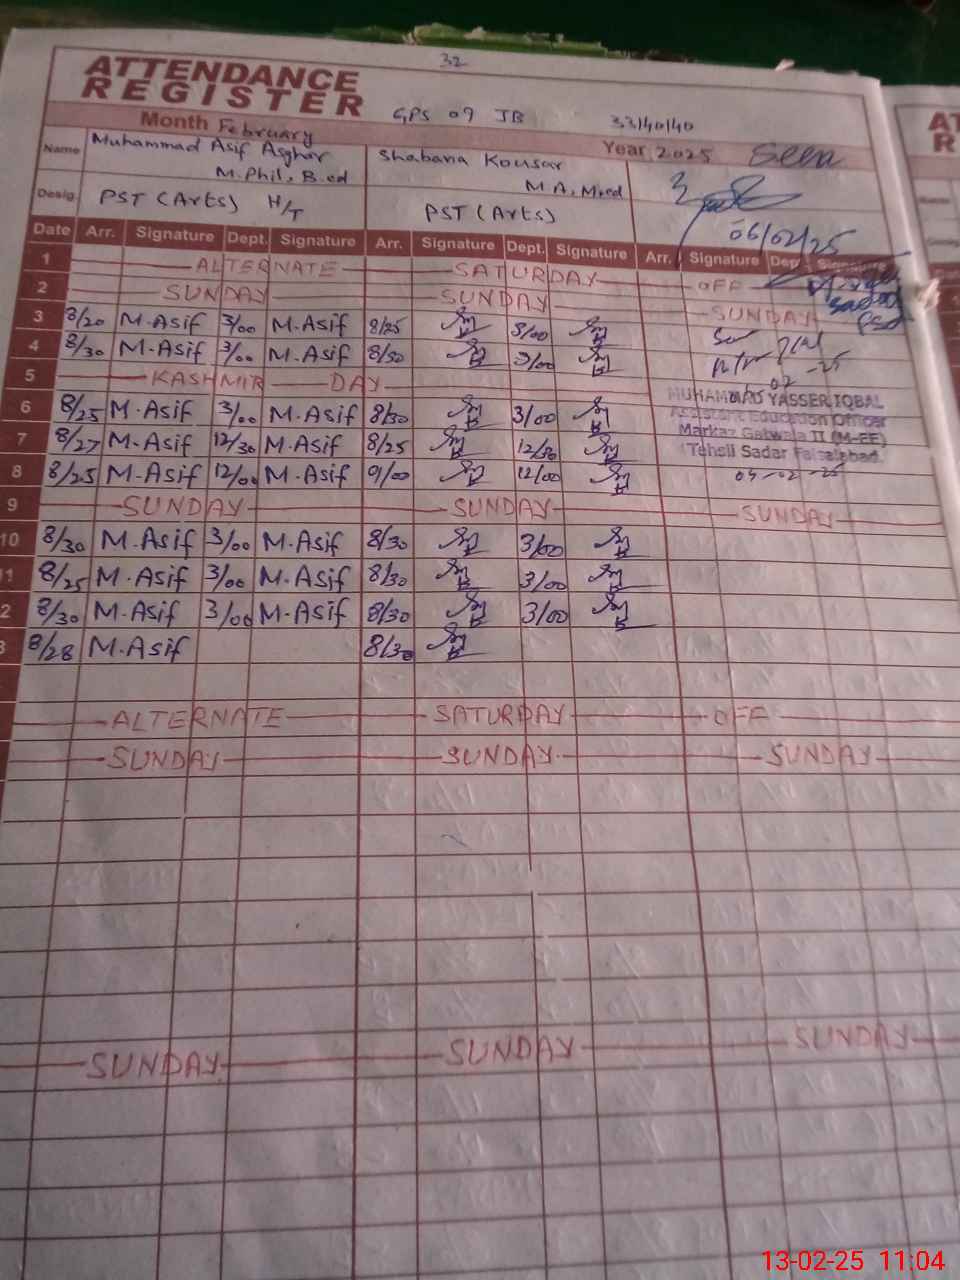 32
ATTENDANCE
REGISTER
GPS 09 JB 33140140
Month February Year 2025 Seen
Name Muhammad Asif Asghar Shabana Kousar
M.Phil, B.ed M.A, M.ed
Desig. PST (Arts) H/T PST (Arts)
06/02/25
Date Arr. Signature Dept. Signature Arr. Signature Dept. Signature Arr. Signature Dept. Signature
1 ALTERNATE SATURDAY OFF
2 SUNDAY SUNDAY SUNDAY
3 8/20 M.Asif 3/00 M.Asif 8/25 3/00
4 8/30 M.Asif 3/00 M.Asif 8/30 3/00
5 KASHMIR DAY
MUHAMMAD YASSER IQBAL
6 8/25 M.Asif 3/00 M.Asif 8/30 3/00
Assistant Education Officer
7 8/27 M.Asif 12/30 M.Asif 8/25 12/30
Markaz Gatwala II (M-EE)
Tehsil Sadar Faisalabad.
8 8/25 M.Asif 12/00 M.Asif 9/00 12/00
04-02-25
9 SUNDAY SUNDAY SUNDAY
10 8/30 M.Asif 3/00 M.Asif 8/30 3/00
11 8/25 M.Asif 3/00 M.Asif 8/30 3/00
2 8/30 M.Asif 3/00 M.Asif 8/30 3/00
3 8/28 M.Asif 8/30
ALTERNATE SATURDAY OFF
SUNDAY SUNDAY SUNDAY
SUNDAY SUNDAY SUNDAY
13-02-25 11:04